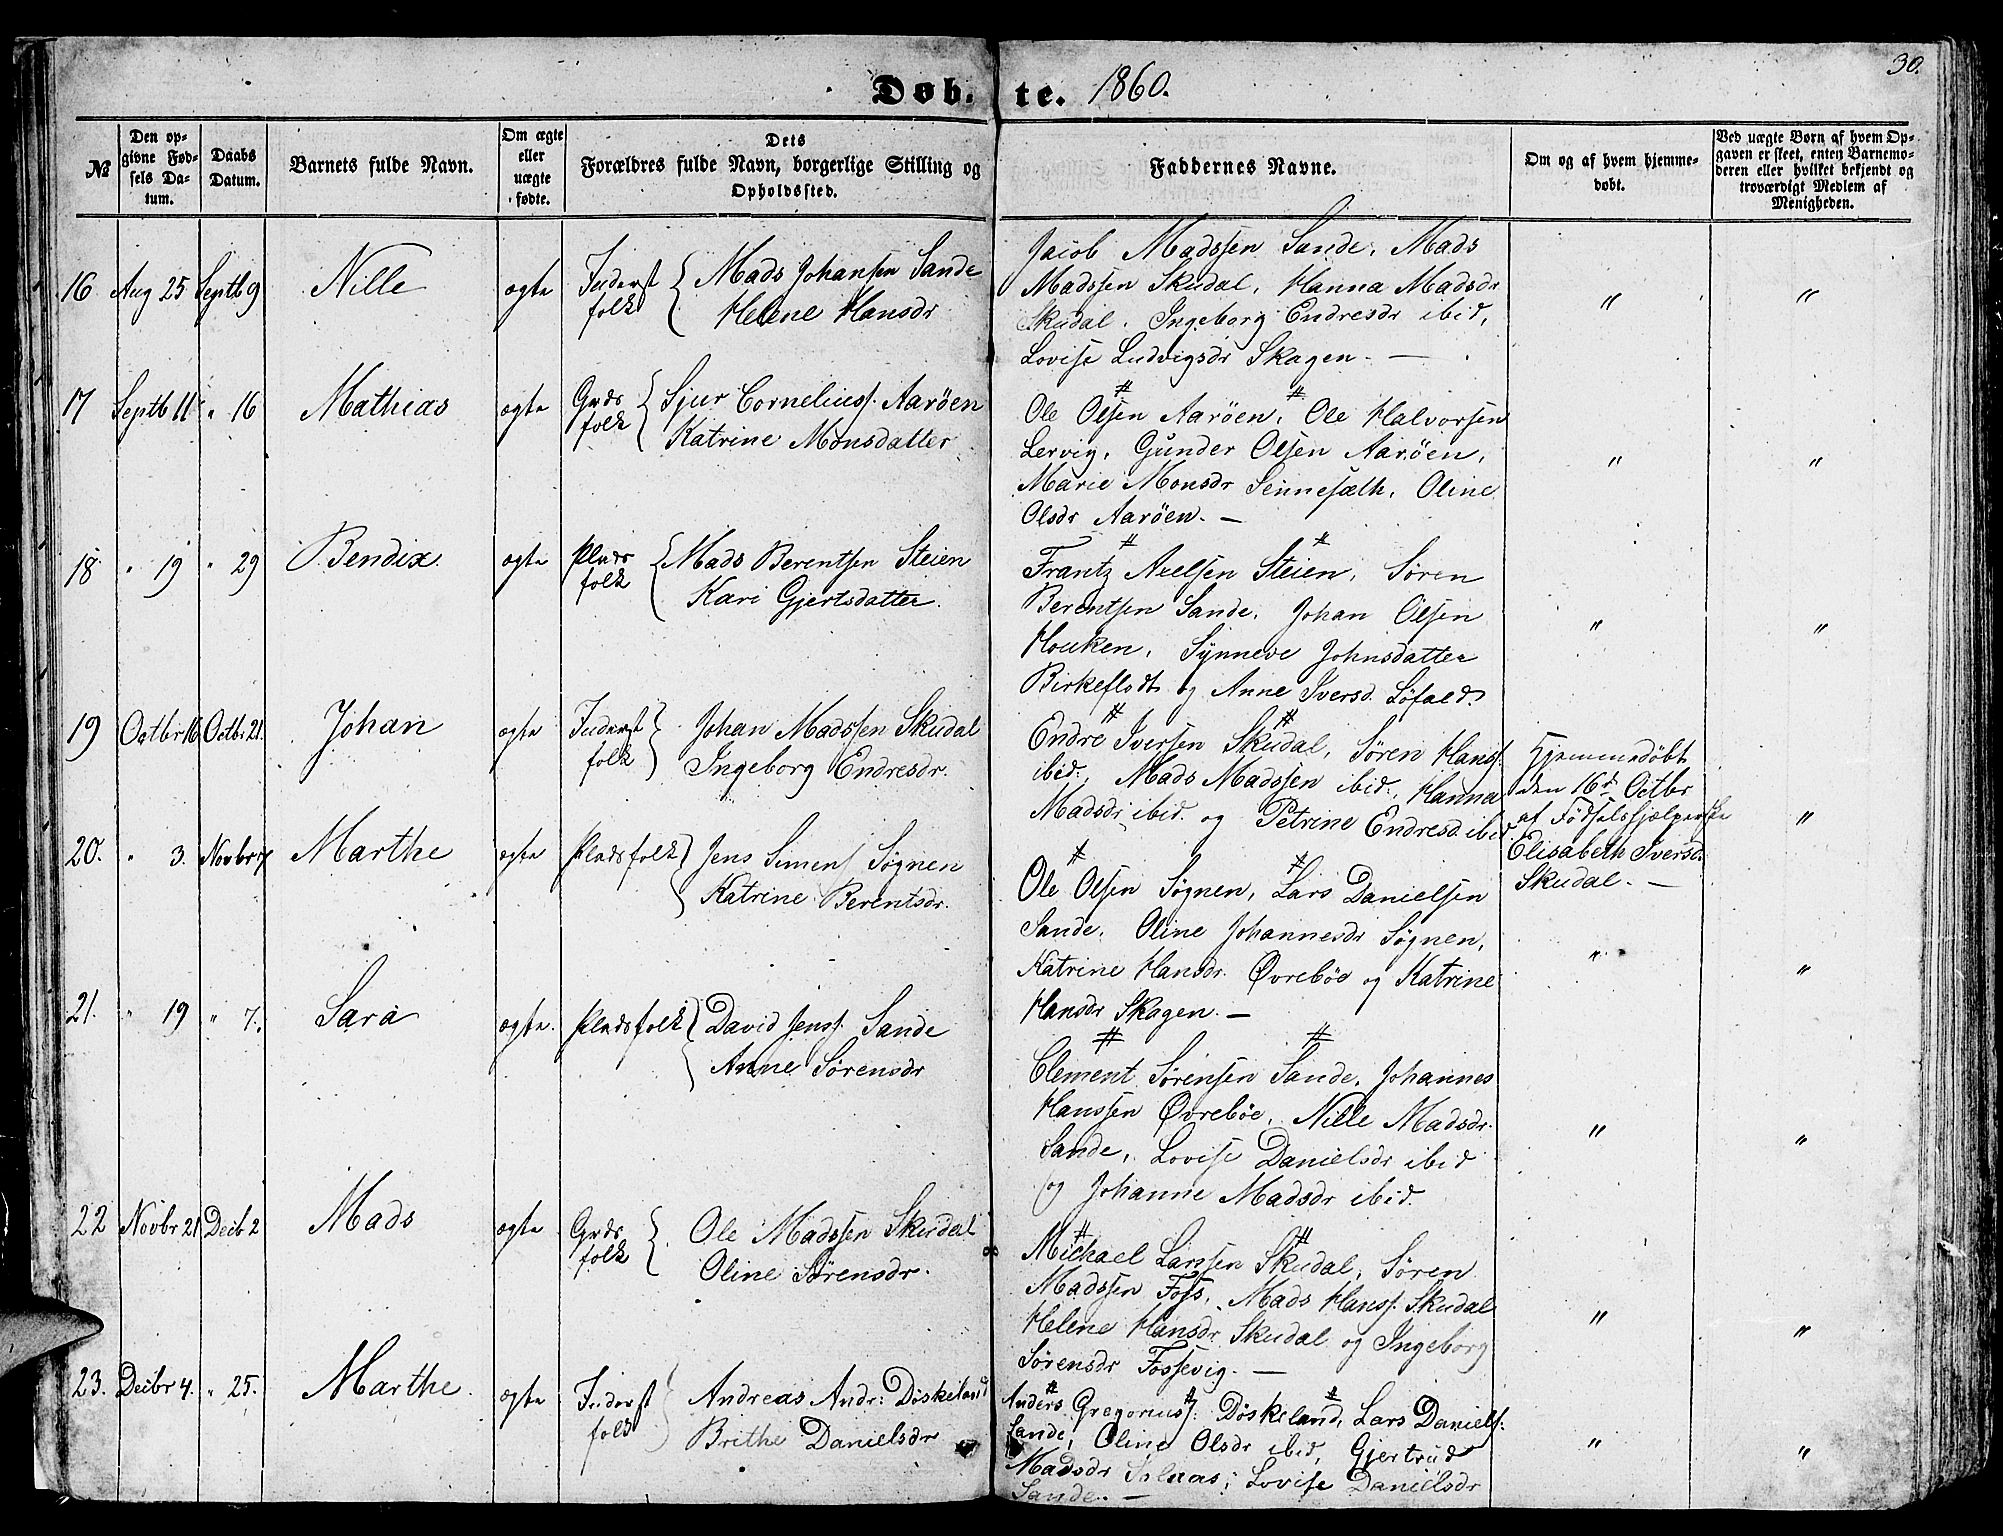 30.
Døb- te. 1860.
№
Den op-
givne Fød-
sels Da-
tum.
Daabs
Datum.
Barnets fulde Navn.
Om ægte
eller
uægte
fødte.
Dets
Forældres fulde Navn, borgerlige Stilling og
Opholdssted.
Faddernes Navne.
Om og af hvem hjemme-
døbt.
Ved uægte Børn af hvem Op-
gaven er skeet, enten Barnemo-
deren eller hvilket bekjendt og
troværdigt Medlem af
Menigheden.
16 Aug 25 Septb 9 Nille ægte Inderst
folk { Mads Johansen Sande
Helene Hansdr
Jacob Madssen Sande, Mads
Madssen Skudal, Hanna Madsdr
Skudal, Ingeborg Endresdr ibid,
Lovise Ludvigsdr Skagen. —
" "
17 Septb 11 " 16 Mathias ægte Grds
folk { Sjur Corneliuss. Aarøen
Katrine Monsdatter
Ole Olsen Aarøen, Ole Halvorsen
Lervig, Gunder Olsen Aarøen,
Marie Monsdr Sennesæth, Oline
Olsdr Aarøen. —
" "
18 " 19 " 29 Bendix ægte Plads
folk { Mads Berentsen Steien
Kari Gjertsdatter.
Frantz Axelsen Steien, Søren
Berentsen Sande, Johan Olsen
Houken, Synneve Johnsdatter
Birkeflodt og Anne Iversd. Løfald.
" "
19 Octbr 16 Octbr 21 Johan ægte Inderst
folk } Johan Madssen Skudal
Ingeborg Endresdr.
Endre Iversen Skudal, Søren Hanss.
ibid., Mads Madssen ibid., Hanna
Madsdr ibid. og Petrine Endresd. ibid
Hjemmedøbt
den 16d Octbr
af Fødselshjælperske
Elisabeth Iversd.
Skudal. —
"
20. " 3. Novbr 7 Marthe ægte Pladsfolk } Jens Simens Søgnen
Katrine Berentsdr.
Ole Olsen Søgnen, Lars Danielsen
Sande, Oline Johannesdr Søgnen,
Katrine Hansdr. Øvrebøe og Katrine
Hansdr Skagen. —
" "
21. " 19 " 7. Sara ægte. Pladsfolk } David Jenss. Sande
Anne Sørensdr
Clement Sørensen Sande, Johannes
Hanssen Øvrebøe, Nille Madsdr.
Sande, Lovise Danielsdr ibid
og Johanne Madsdr ibid.
" "
22 Novbr 21 Decb 2 Mads ægte Grds
folk { Ole Madssen Skudal
Oline Sørensdr.
Michael Larssen Skudal, Søren
Madssen Foss, Mads Hanss. Skudal
Helene Hansdr Skudal og Ingeborg
Sørensdr Fossevig. —
" "
23. Decbr 4. " 25. Marthe. ægte Inderst
folk } Andreas Andr: Døskeland
Brithe Danielsdr
Anders Gregoriuss: Døskeland, Lars Daniels:
Sande, Oline Olsdr ibid, Gjertrud
Madsdr Solnæs, Lovise Danielsdr
Sande. —
" "